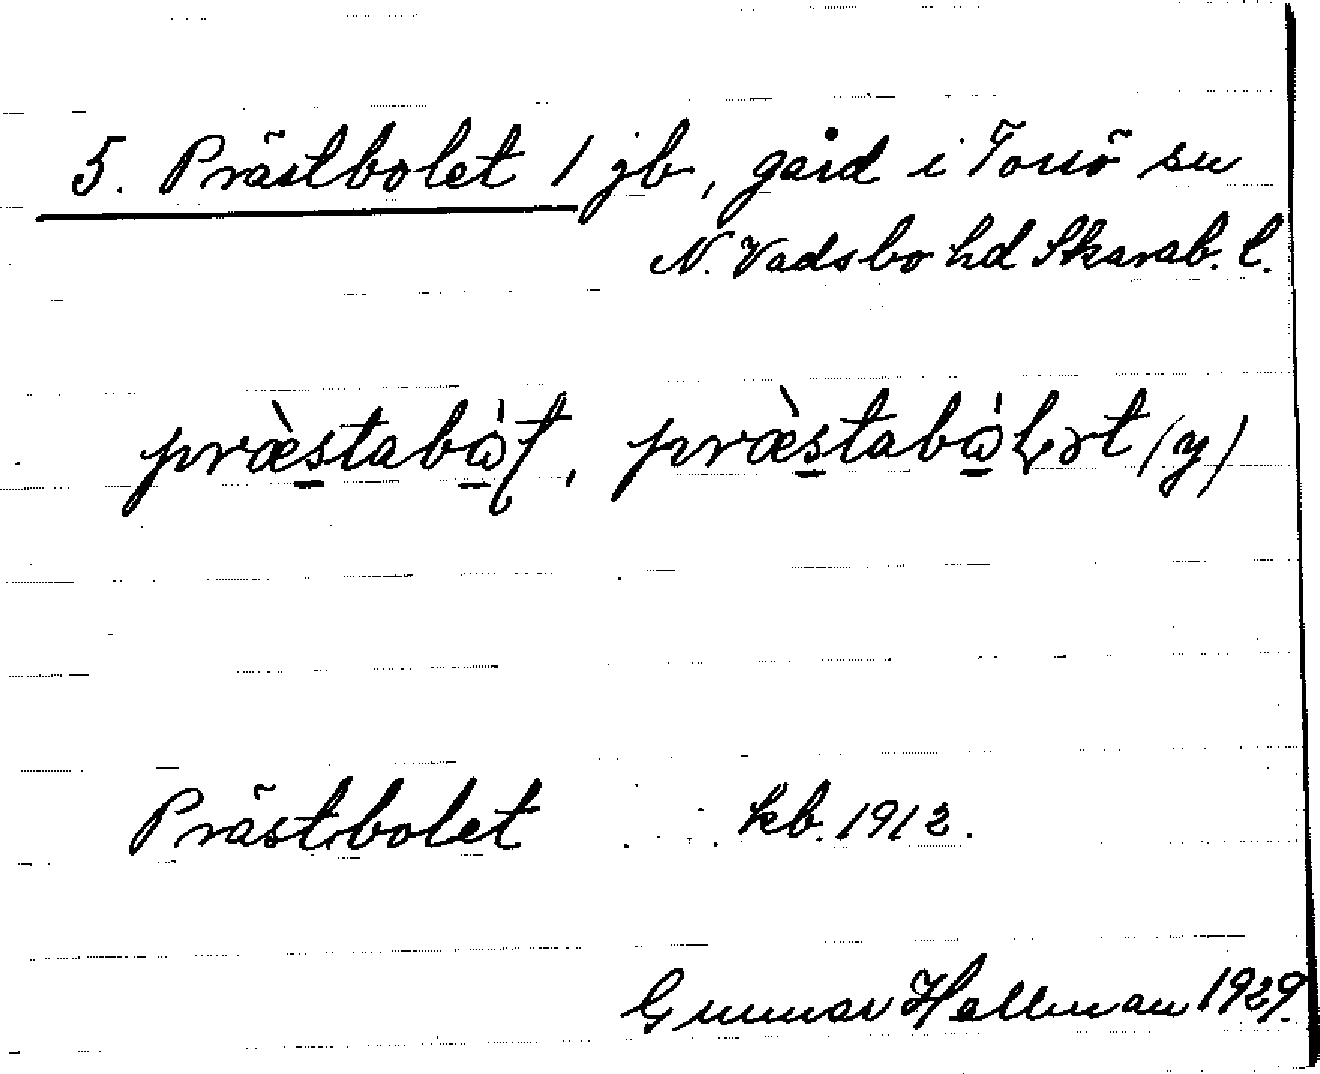 5. Prästbolet 1 jb, gård i Torsö sn
N. Vadsbo hd Skarab. l.
præ̀stabɷ̀ʈ, præ̀stabɷ̀ɽət (y)
Prästbolet kb. 1912.
Gunnar Hallman 1929.